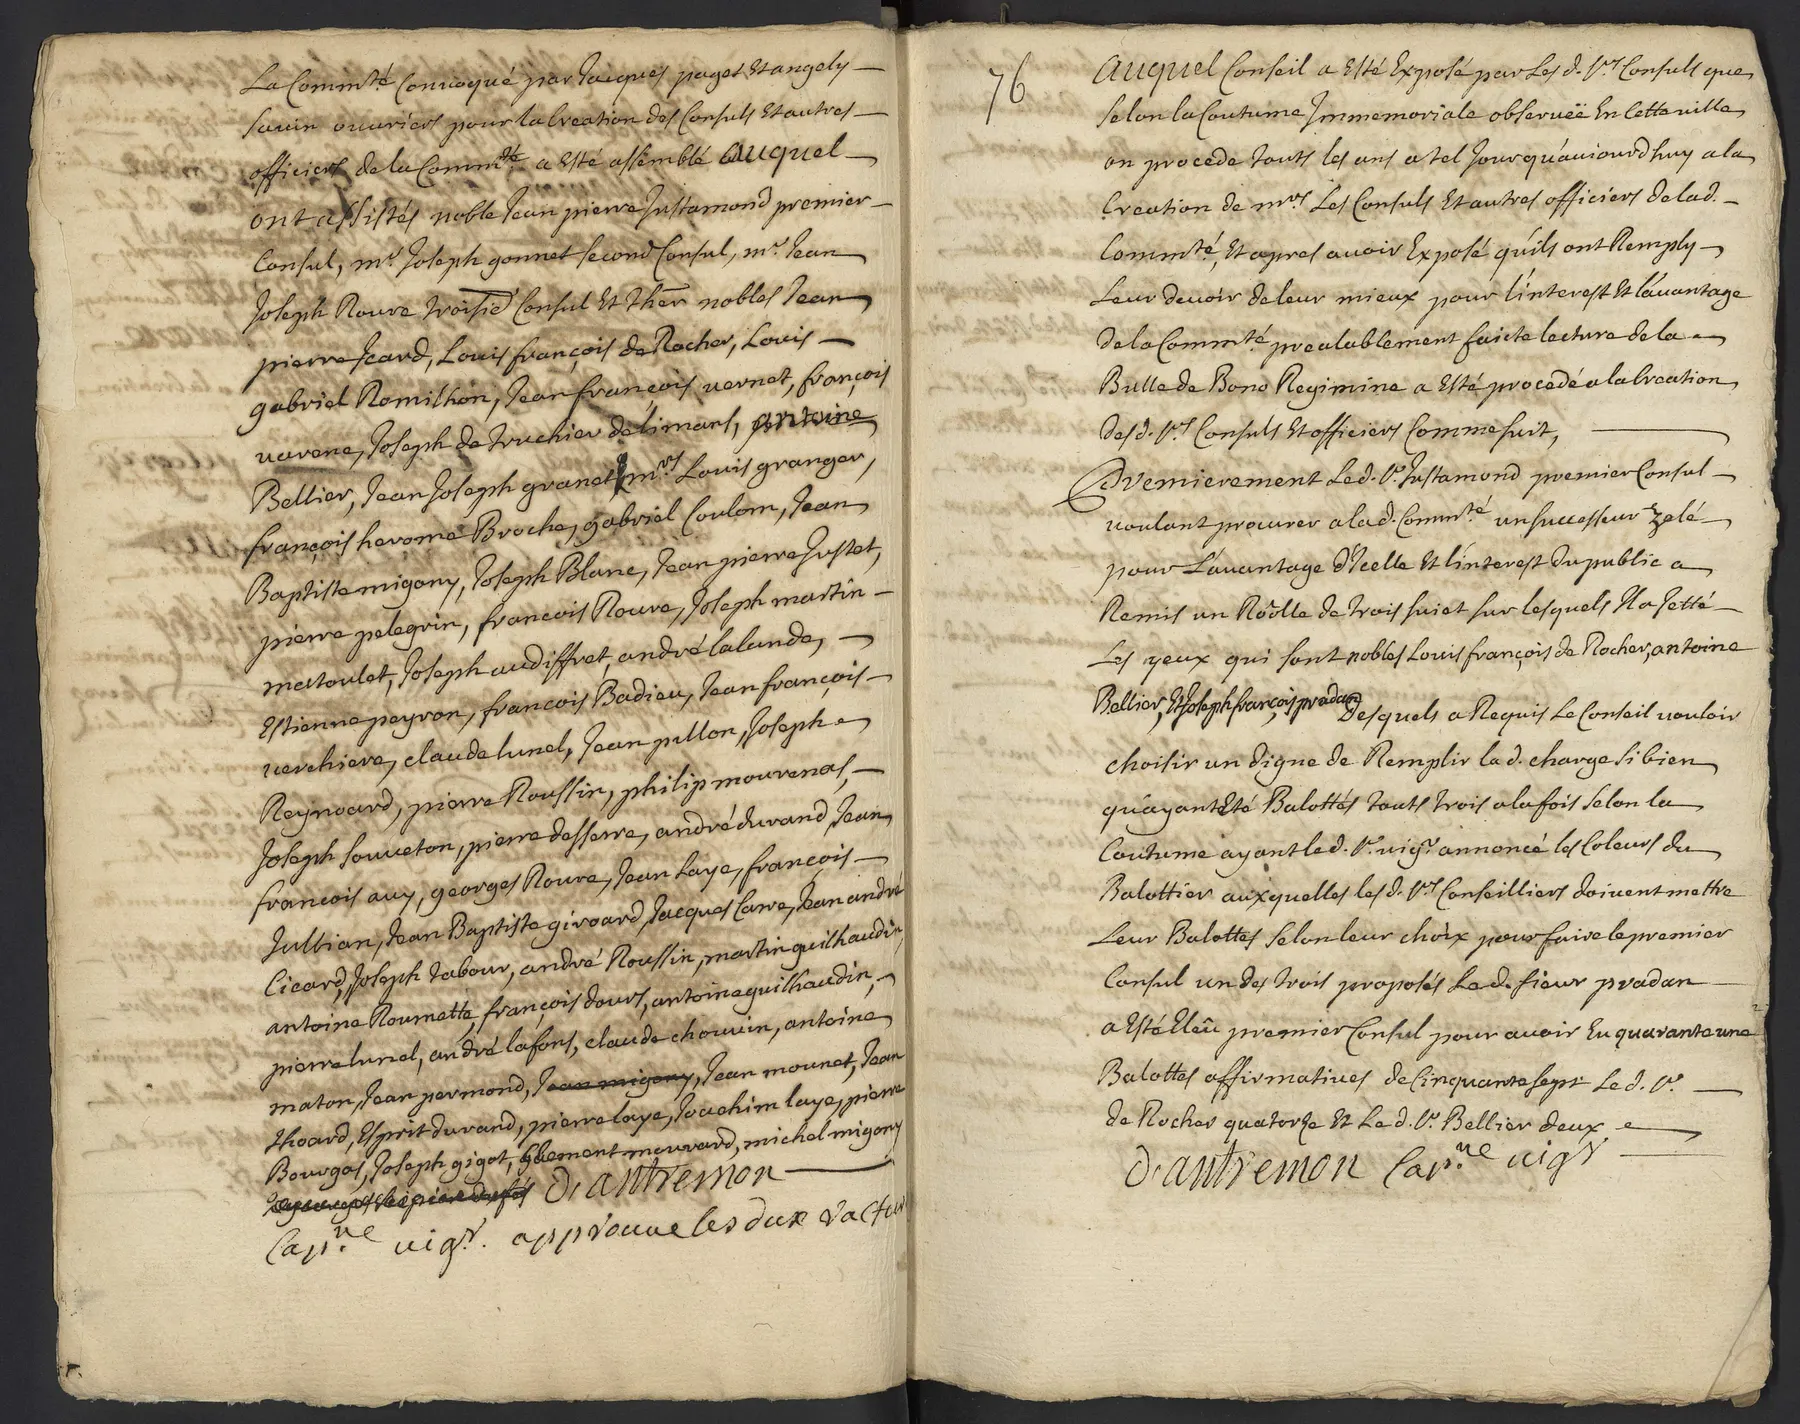 La Comm^té Convoqué par Jacques paget Et angely
savin ouvriers pour la Creation des Consuls Et autres
officiers de la Comm^té a Esté assemblé Auquel
ont assistés noble Jean pierre Justamond premier
Consul, m^r. Joseph gonnet second Consul, m^r. Jean
Joseph Rouve troisiē Consul Et ther nobles Jean
pierre Icard, Louis françois de Rocher, Louis
gabriel Romilhon, Jean francois vernet, françois
varene, Joseph de truchier de limans, antoine
Bellier, Jean Joseph granet m^rs Louis granger,
françois herome Broche, gabriel Coulom, Jean
Baptiste migony, Joseph Blanc, Jean pierre Justet,
pierre pelegrin, francois Rouve, Joseph martin
matoulet, Joseph audiffret, andré lalande,
Estienne peyron, francois Badieu, Jean françois
verchiere, claude lunel, Jean pillon, Joseph
Reynoard, pierre Roussin, philip mourenas,
Joseph souveton, pierre desserre, andré durand, Jean
francois auy, georges Rouve, Jean Laye, françois
Jullian, Jean Baptiste giroard, Jacques Carre, Jean andré
Cicard, Joseph tabour, andré Roussin, martin guilhaudin,
antoine Roumette, françois dours, antoine guilhaudin,
pierre lunel, andré lafons, claude chouvin, antoine
maton, Jean permond, Jean migony, Jean mounet, Jean
thoard, Esprit durand, pierre laye, Joachim laye, pierre
Bourgas, Joseph gigot, Clement mouvard, michel migony
D'antremon
Cap.^ne vig^r. approuve les dux ractur
76
Auquel Conseil a Esté Exposé par Les d. s^rs Consuls que
selon la Coutume Immemoriale observeë En Cette ville
on procede touts les ans a tel Jour qu'aujourd'huy a la
Creation de m^rs Les Consuls Et autres officiers de lad.
Comm^té, Et apres avoir Exposé qu'ils ont Remply
Leur devoir de leur mieux pour l'interest Et l'avantage
de la Comm^té prealablement faicte lecture de la
Bulle de Bono Regimine a Esté procedé a la Creation
desd. s^rs Consuls Et officiers Comme suit,
Premierement Led. s^r. Justamond premier Consul
voulant procurer a lad. Comm^té un successeur zelé
pour L'avantage d'Icelle Et l'interest du public a
Remis un Roôlle de trois sujet sur lesquels Il a Jetté
Les yeux qui sont nobles Louis françois de Rocher, antoine
Bellier, Et Joseph françois pradan desquels a Requis Le Conseil vouloir
choisir un digne de Remplir la d. charge si bien
qu'ayant Eté Balottés touts trois a la fois selon la
Coutume ayant le d. s^r. vig^r. annoncé les Coleurs du
Balottier auxquelles les d. s^rs Conseilliers doivent mettre
Leur Balottes selon leur choix pour faire le premier
Consul un des trois proposés Le d. sieur pradan
a Esté Eleû premier Consul pour avoir Eu quarante une
Balottes affirmatives de Cinquante sept Le d. s^r.
de Rocher quatorze Et Le d. s^r. Bellier deux
D'antremon Cap.^ne vig^r